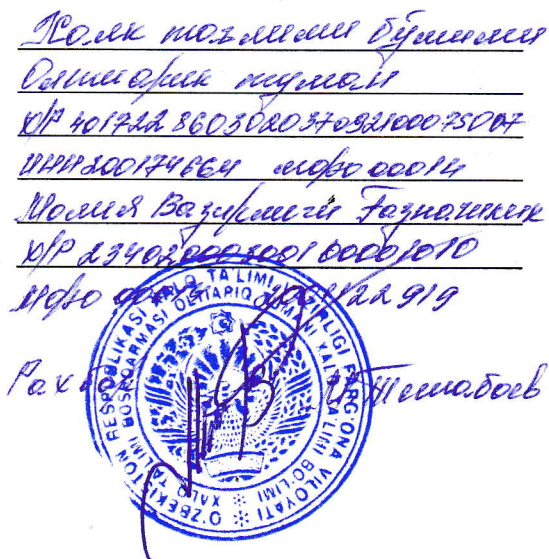 Халк таълими бўлими
Олтиарик тумани
Х/Р 401722860302037092100075007
ИНН 200174664 мфо 00014
Молия Вазирлиги Ғазначилик
Х/Р 23402000300100001010
Мфо
22919
O'ZBEKISTON RESPUBLIKASI XALQ TA'LIMI VAZIRLIGI FARG'ONA VILOYATI
XALQ TA'LIMI BOSHQARMASI OLTIARIQ TUMANI XALQ TA'LIMI BO'LIMI